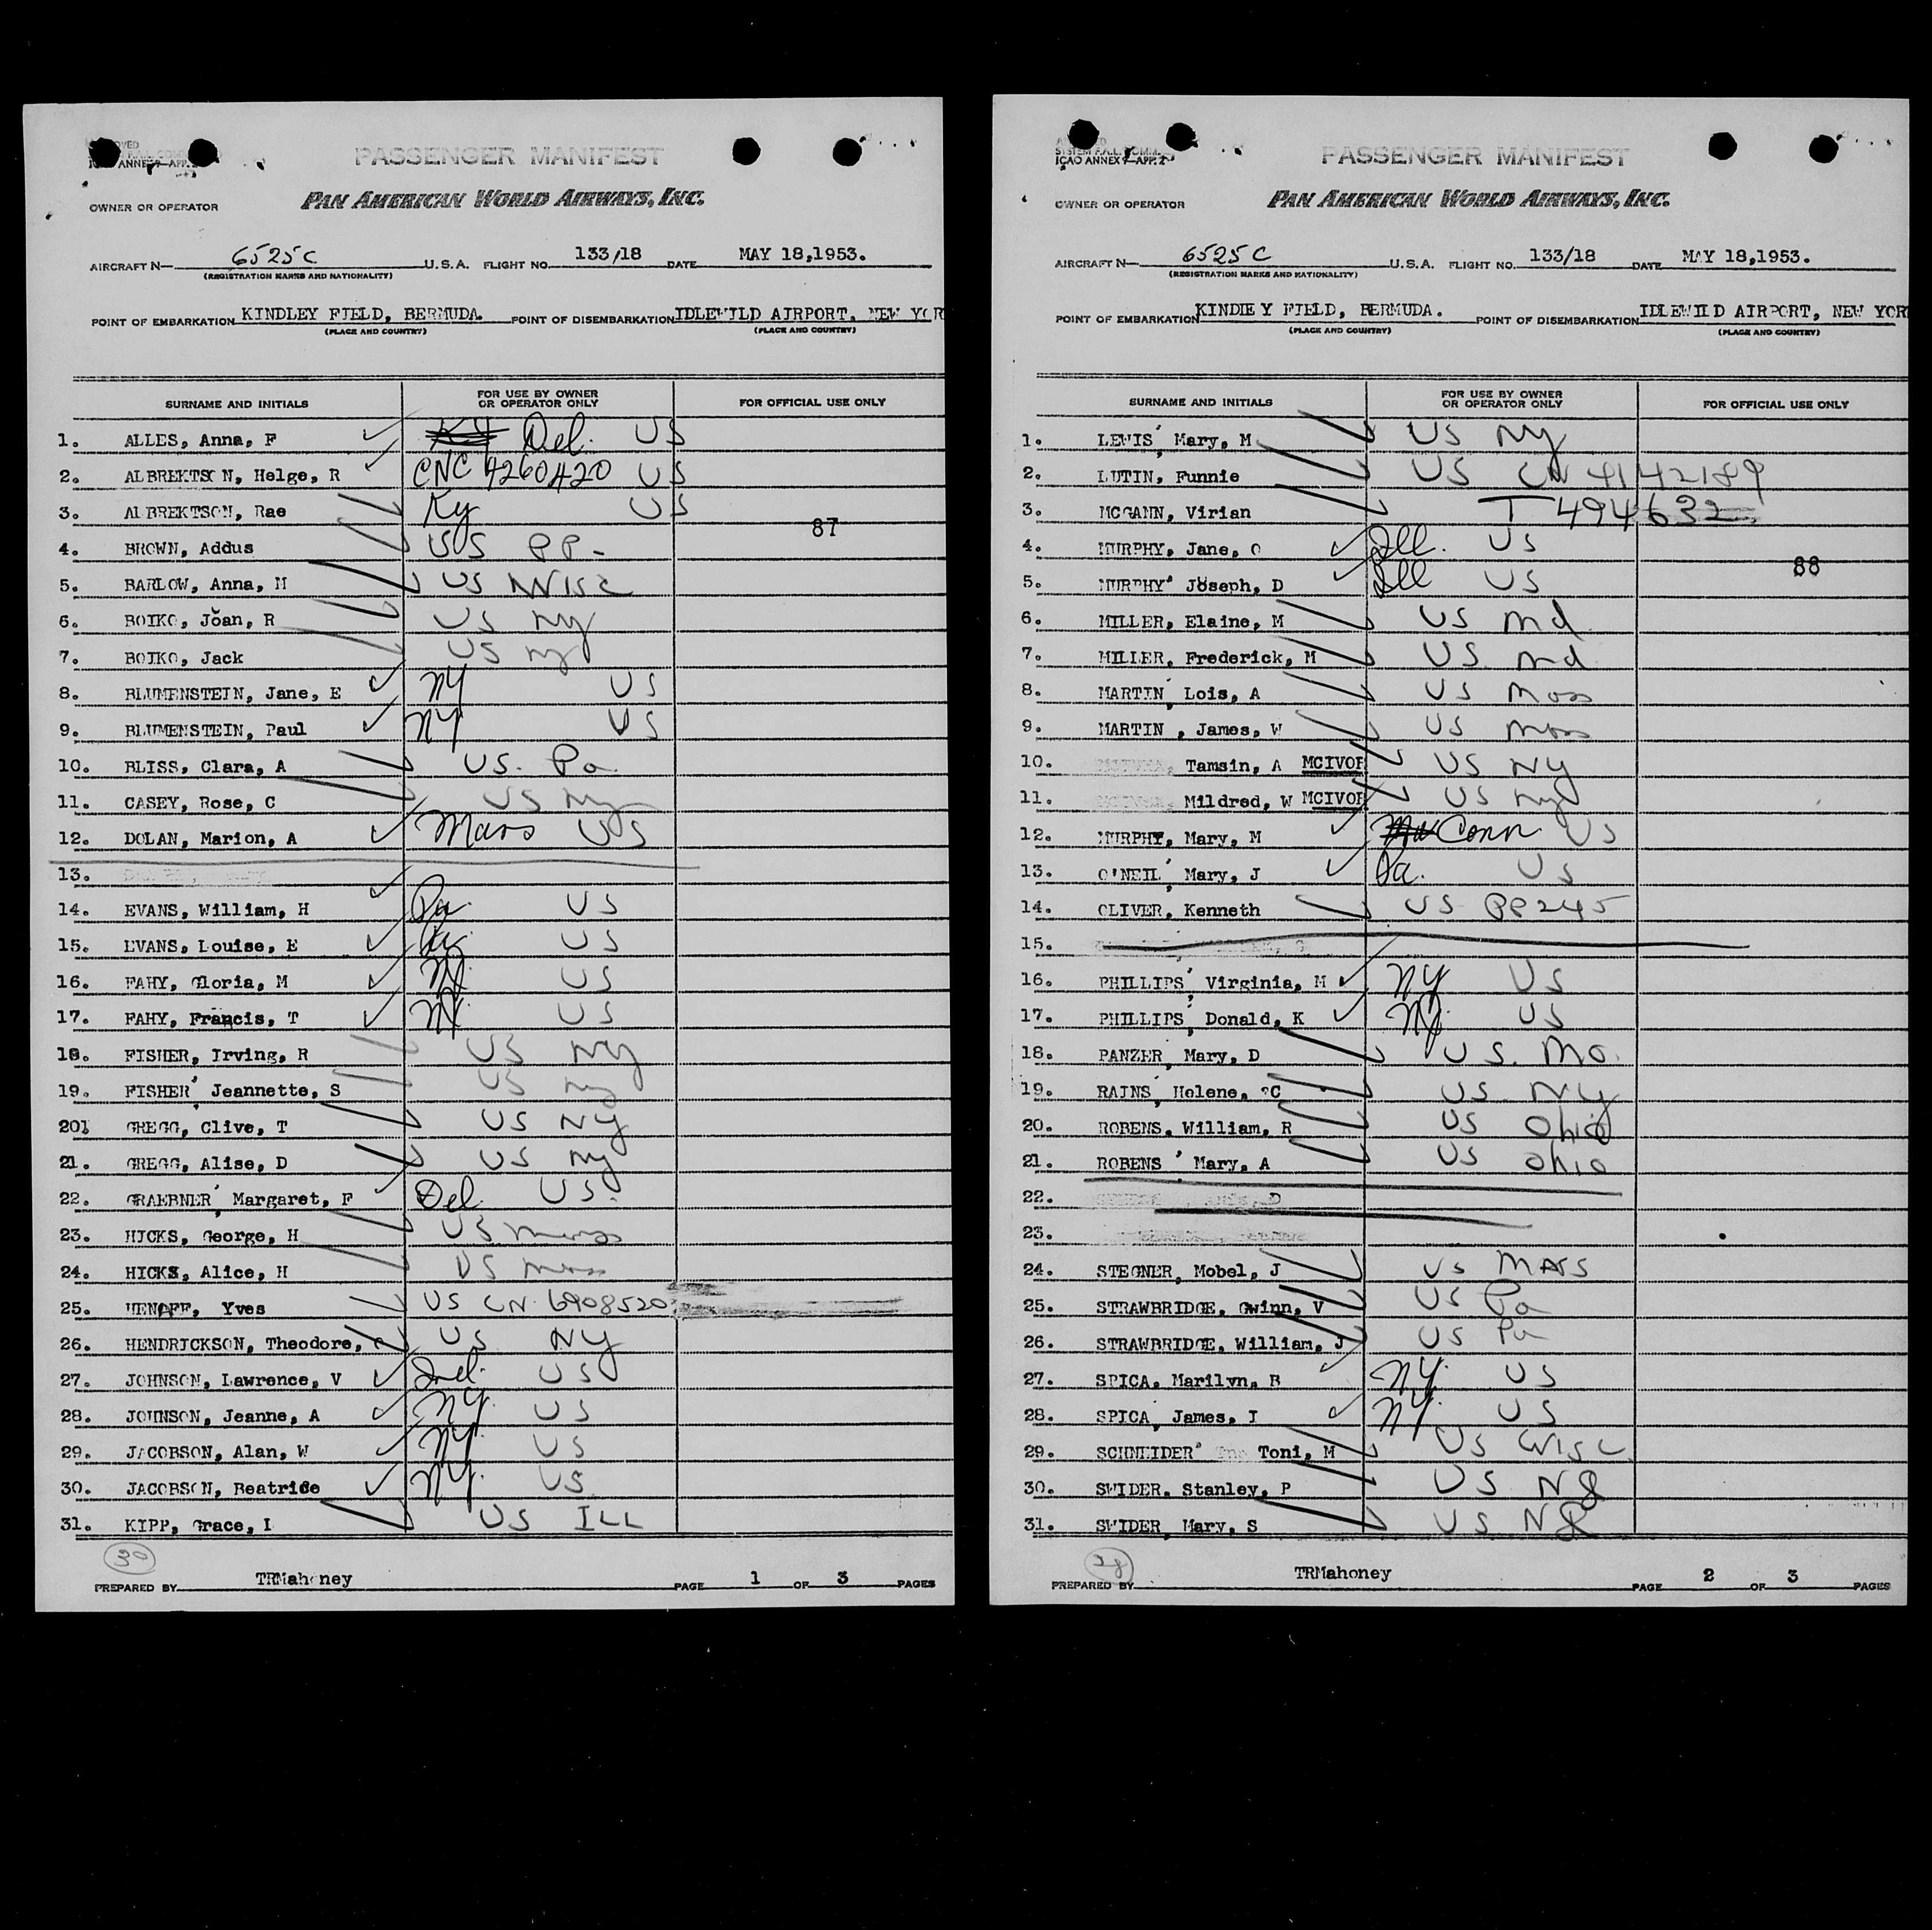 PASSENGER MANIFEST
PAN AMERICAN WORLD AIRWAYS, INC.
OWNER OR OPERATOR
AIRCRAFT N— 6525C U.S.A. FLIGHT NO. 133/18 DATE MAY 18,1953.
(REGISTRATION MARKS AND NATIONALITY)
POINT OF EMBARKATION KINDLEY FIELD, BERMUDA. POINT OF DISEMBARKATION IDLEWILD AIRPORT, NEW YOR
(PLACE AND COUNTRY) (PLACE AND COUNTRY)
SURNAME AND INITIALS FOR USE BY OWNER OR OPERATOR ONLY FOR OFFICIAL USE ONLY
1. ALLES, Anna, F Del. US
2. ALBREKTSON, Helge, R CNC 4260420 US
3. ALBREKTSON, Rae Ky US
87
4. BROWN, Addus US PP-
5. BARLOW, Anna, M US Wisc
6. BOIKO, Joan, R US NY
7. BOIKO, Jack US NY
8. BLUMENSTEIN, Jane, E NY US
9. BLUMENSTEIN, Paul NY US
10. BLISS, Clara, A US. Pa
11. CASEY, Rose, C US NY
12. DOLAN, Marion, A Mass US
13.
14. EVANS, William, H Pa US
15. EVANS, Louise, E Pa US
16. FAHY, Gloria, M NJ US
17. FAHY, Francis, T NJ US
18. FISHER, Irving, R US NY
19. FISHER, Jeannette, S US NY
201 GREGG, Clive, T US NY
21. GREGG, Alise, D US NY
22. GRAEBNER, Margaret, F Del US.
23. HICKS, George, H US Mass
24. HICKS, Alice, H US Mass
25. HENAFF, Yves US CN 6908520
26. HENDRICKSON, Theodore, US NY
27. JOHNSON, Lawrence, V US
28. JOHNSON, Jeanne, A NY. US
29. JACOBSON, Alan, W NY US
30. JACOBSON, Beatrice NY. US
31. KIPP, Grace, I US ILL
30
PREPARED BY TRMahoney PAGE 1 OF 3 PAGES
ICAO ANNEX 9—APP. 2
PASSENGER MANIFEST
PAN AMERICAN WORLD AIRWAYS, INC.
OWNER OR OPERATOR
AIRCRAFT N— 6525C U.S.A. FLIGHT NO. 133/18 DATE MAY 18,1953.
(REGISTRATION MARKS AND NATIONALITY)
POINT OF EMBARKATION KINDLEY FIELD, BERMUDA. POINT OF DISEMBARKATION IDLEWILD AIRPORT, NEW YOR
(PLACE AND COUNTRY) (PLACE AND COUNTRY)
SURNAME AND INITIALS FOR USE BY OWNER OR OPERATOR ONLY FOR OFFICIAL USE ONLY
1. LEWIS, Mary, M US NY
2. LUTIN, Funnie US CN 4142189
3. MCGANN, Virian T 494632
4. MURPHY, Jane, O Ill. US
88
5. MURPHY, Joseph, D Ill US
6. MILLER, Elaine, M US Md
7. MILLER, Frederick, M US Md
8. MARTIN, Lois, A US Mass
9. MARTIN , James, W US Mass
10. Tamsin, A MCIVOR US NY
11. Mildred, W MCIVOR US NY
12. MURPHY, Mary, M Conn US
13. O'NEIL, Mary, J Pa. US
14. OLIVER, Kenneth US PP245
15.
16. PHILLIPS, Virginia, M NY US
17. PHILLIPS, Donald, K NY. US
18. PANZER, Mary, D US. Mo.
19. RAINS, Helene, C US NY
20. ROBENS, William, R US Ohio
21. ROBENS, Mary, A US Ohio
22.
23.
24. STEGNER, Mobel, J US MASS
25. STRAWBRIDGE, Gwinn, V US Pa
26. STRAWBRIDGE, William, J US Pa
27. SPICA, Marilyn, B NY. US
28. SPICA, James, I NY. US
29. SCHNEIDER, Toni, M US Wisc
30. SWIDER, Stanley, P US NJ
31. SWIDER, Mary, S US NJ
28
PREPARED BY TRMahoney PAGE 2 OF 3 PAGES